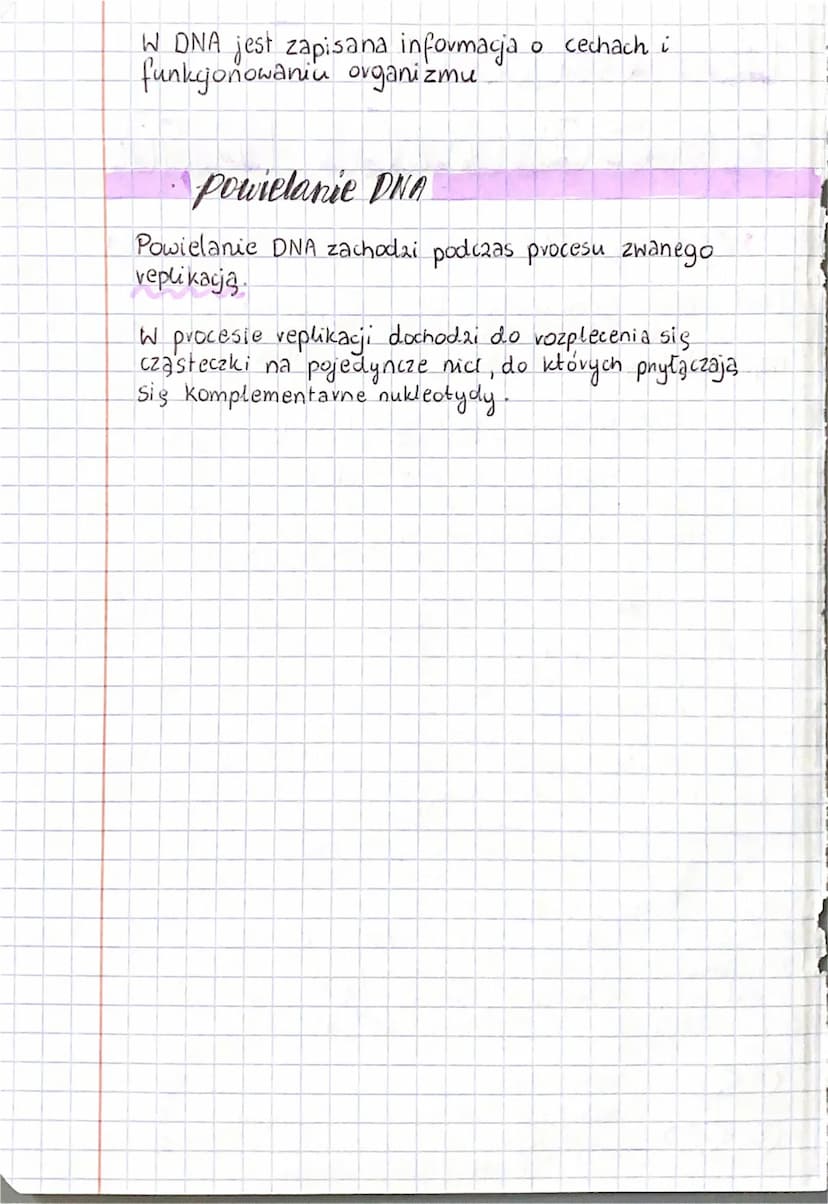 W DNA jest zapisana informacja o cechach i
funkcjonowaniu organizmu
powielanie DNA
Powielanie DNA zachodzi podczas procesu zwanego
replikacją.
W procesie replikacji dochodzi do rozplecenia się
cząsteczki na pojedyncze nici, do których przyłączają
się komplementarne nukleotydy.